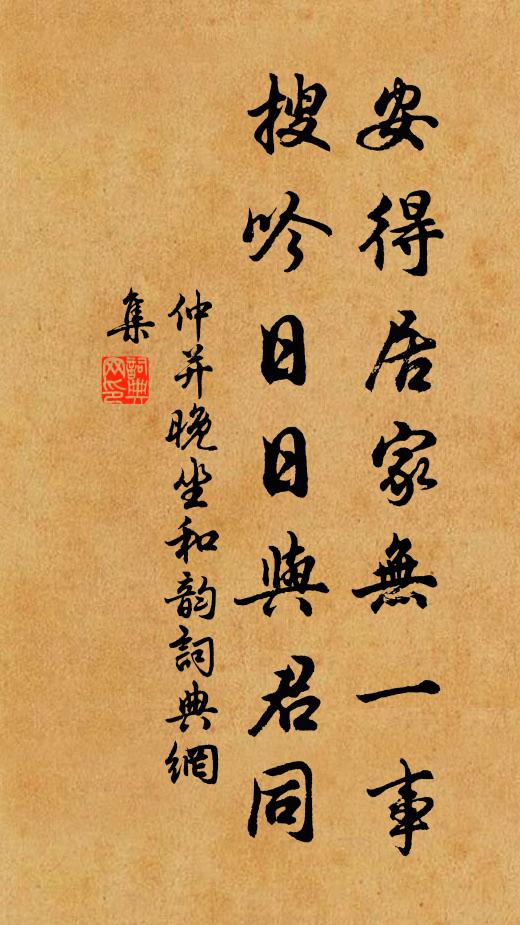 安得居家無一事
搜吟日日與君同
仲并晚坐和韵詞典網
集
詞典
网印